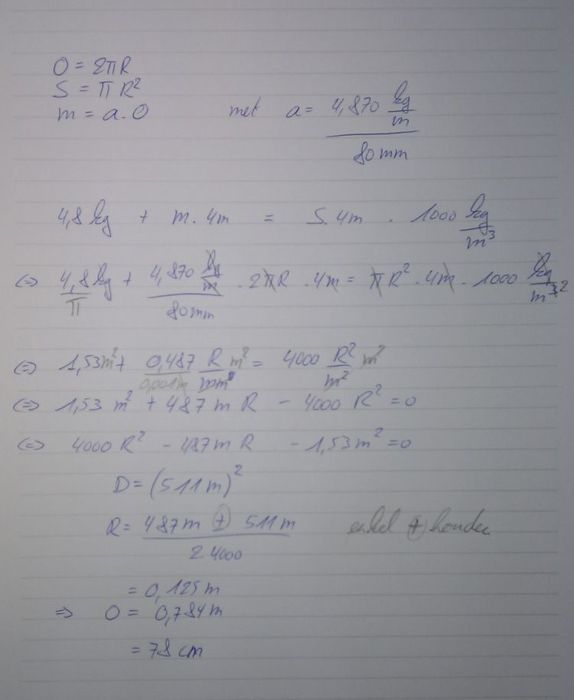 O = 2πR
S = πR²
m = a.O met a = 4,870 kg/m / 80mm
4,8 kg + m. 4m = S. 4m . 1000 kg/m³
<=> 4,8kg/π + 4,870 kg/m / 80mm . 2πR . 4m = πR² . 4m . 1000 kg/m³ ²
<=> 1,53m² + 0,487 R/0,001m m² = 4000 R²/m² m²
<=> 1,53 m² + 487 m R - 4000 R² = 0
<=> 4000 R² - 487m R - 1,53m² = 0
D = (511m)²
R = 487m + 511m / 2.4000 enkel + houden
= 0,125m
=> O = 0,784m
= 78 cm